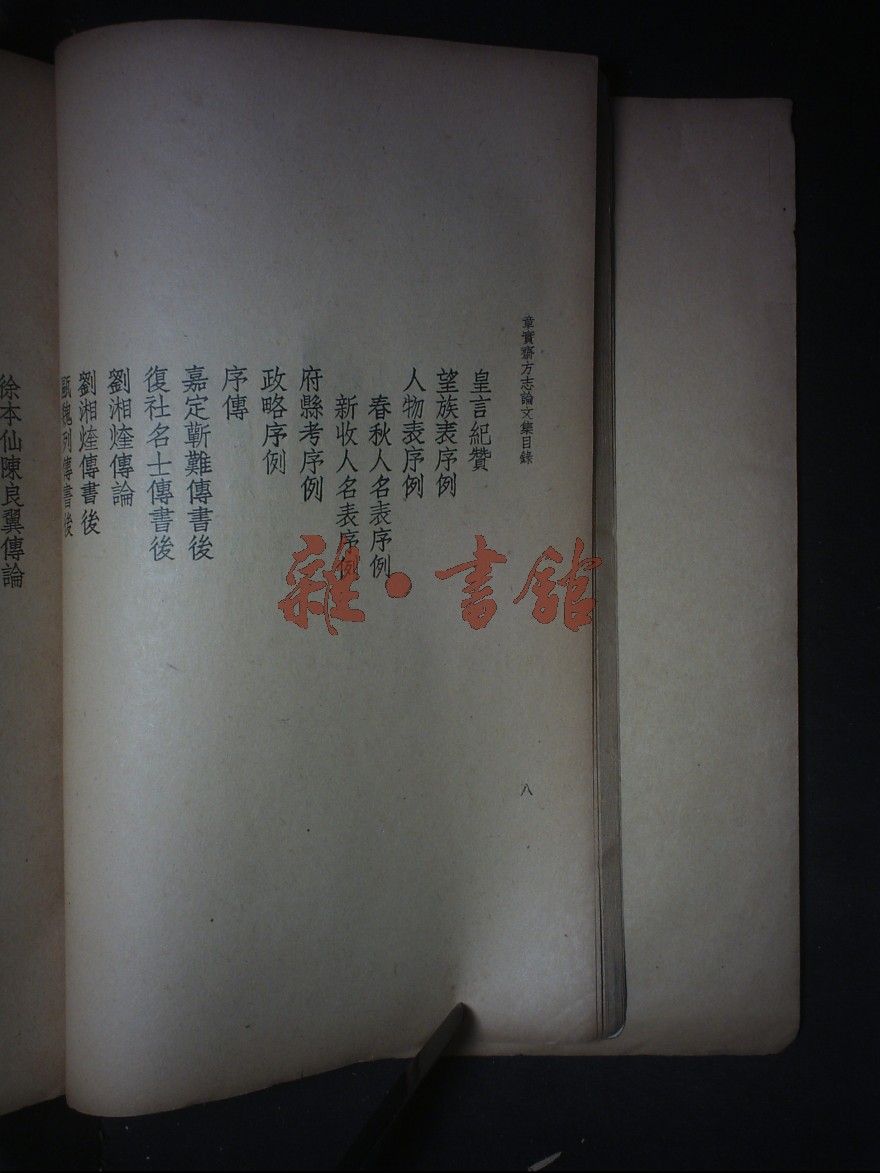 章實齋方志論文集目錄
皇言紀贊
望族表序例
人物表序例
春秋人名表序例
新收人名表序例
府縣考序例
政略序例
序傳
嘉定蘄難傳書後
復社名士傳書後
劉湘煃傳論
劉湘煃傳書後
列傳書後
徐本仙陳良翼傳論
八
雜·書館